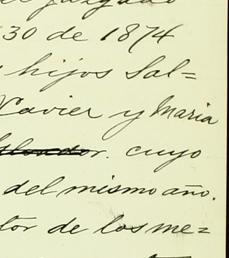 el juzgado
30 de 1874
hijos Sal=
Xavier y Maria
r. cuyo
del mismo año.
tor de los me=